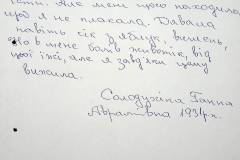 їсти. Але мені щось находила,
щоб я не плакала. Давала
навіть сік з яблук, вишень,
що в мене болів животік, від
цієї їжі, але я завдяки цьому
вижила.
Солодухіна Ганна
Авраамівна 1931р.н.